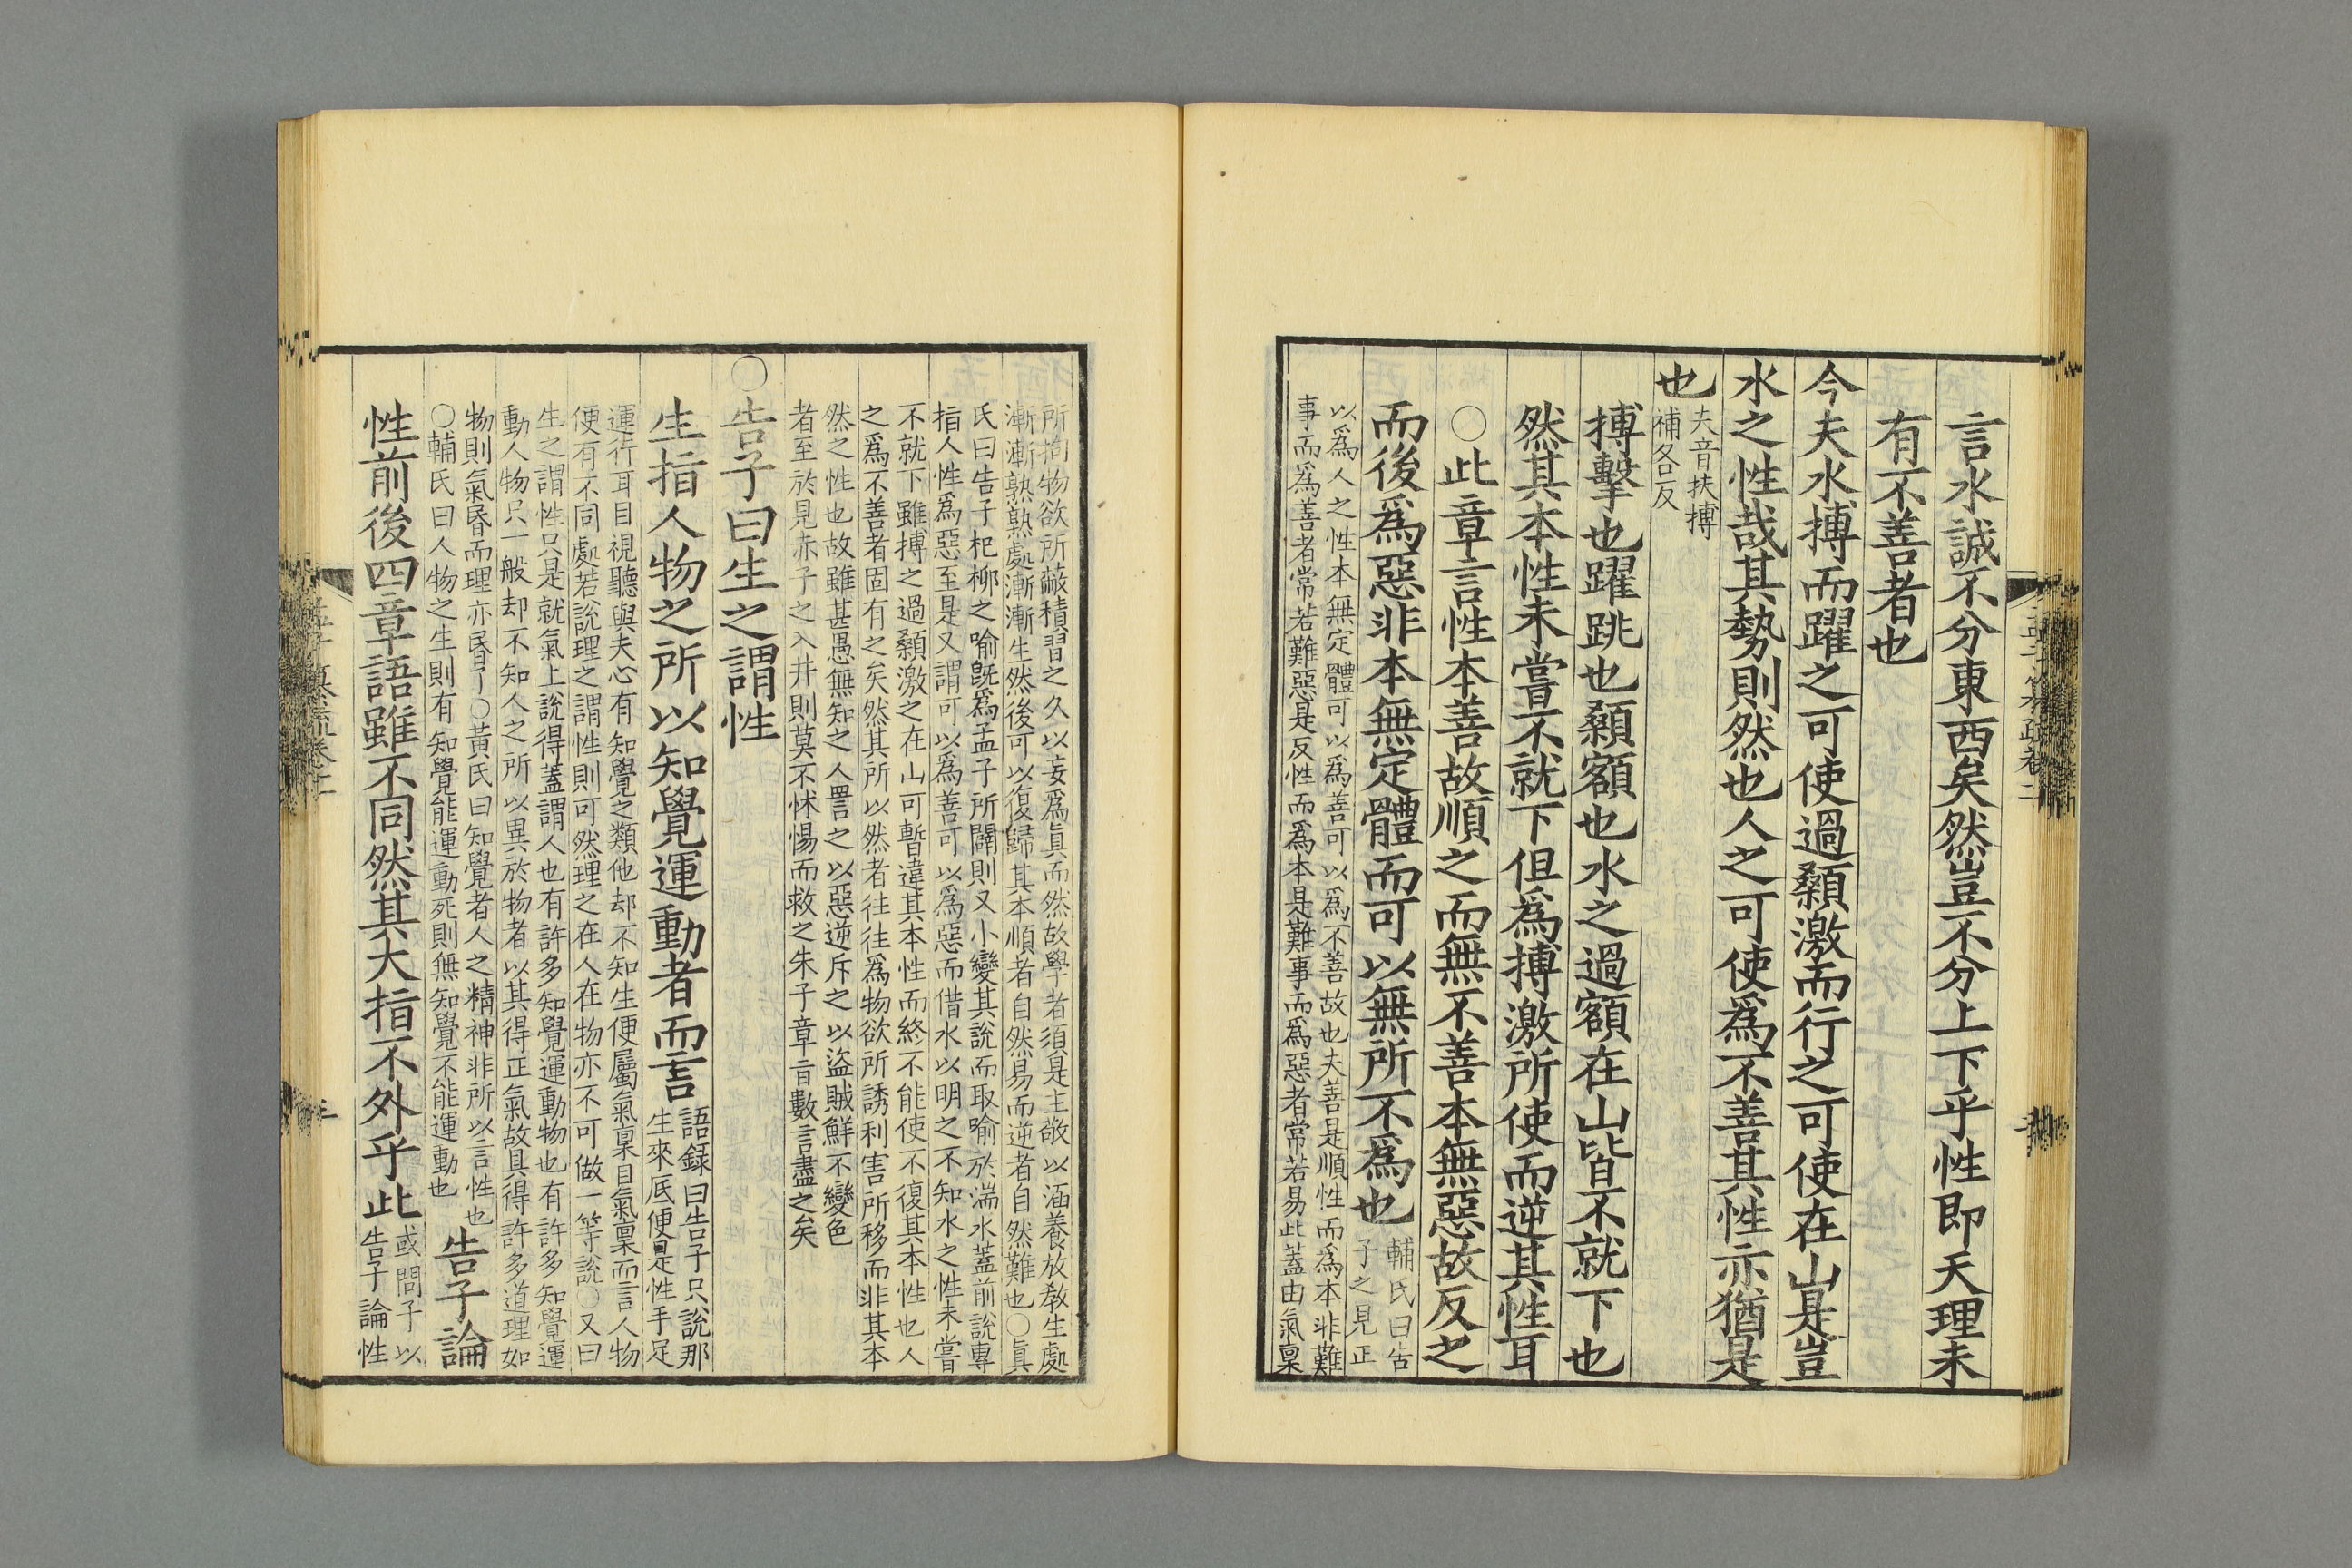 言水誠不分東西矣然豈不分上下乎性即天理未
有不善者也
今夫水搏而躍之可使過顙激而行之可使在山是豈
水之性哉其勢則然也人之可使爲不善其性亦猶是
也
夫音扶搏
補各反
搏擊也躍跳也顙額也水之過額在山皆不就下也
然其本性未嘗不就下但爲搏激所使而逆其性耳
○此章言性本善故順之而無不善本無惡故反之
而後爲惡非本無定體而可以無所不爲也
輔氏曰告
子之見正
以爲人之性本無定體可以爲善可以爲不善故也夫善是順性而爲本非難
事而爲善者常若難惡是反性而爲本是難事而爲惡者常若易此蓋由氣稟
所拘物欲所蔽積習之久以妄爲眞而然故學者須是主敬以涵養放教生處
漸漸熟熟處漸漸生然後可以復歸其本順者自然易而逆者自然難也○眞
氏曰告子杞柳之喻旣爲孟子所闢則又小變其說而取喻於湍水蓋前說專
指人性爲惡至是又謂可以爲善可以爲惡而借水以明之不知水之性未嘗
不就下雖搏之過顙激之在山可暫違其本性而終不能使不復其本性也人
之爲不善者固有之矣然其所以然者往往爲物欲所誘利害所移而非其本
然之性也故雖甚愚無知之人詈之以惡逆斥之以盜賊鮮不變色
者至於見赤子之入井則莫不怵惕而救之朱子章旨數言盡之矣
○告子曰生之謂性
生指人物之所以知覺運動者而言
語録曰告子只說那
生來底便是性手足
運行耳目視聽與夫心有知覺之類他却不知生便屬氣稟自氣稟而言人物
便有不同處若說理之謂性則可然理之在人在物亦不可做一等說○又曰
生之謂性只是就氣上說得蓋謂人也有許多知覺運動物也有許多知覺運
動人物只一般却不知人之所以異於物者以其得正氣故具得許多道理如
物則氣昏而理亦昏了○黃氏曰知覺者人之精神非所以言性也
○輔氏曰人物之生則有知覺能運動死則無知覺不能運動也
告子論
性前後四章語雖不同然其大指不外乎此
或問子以
告子論性